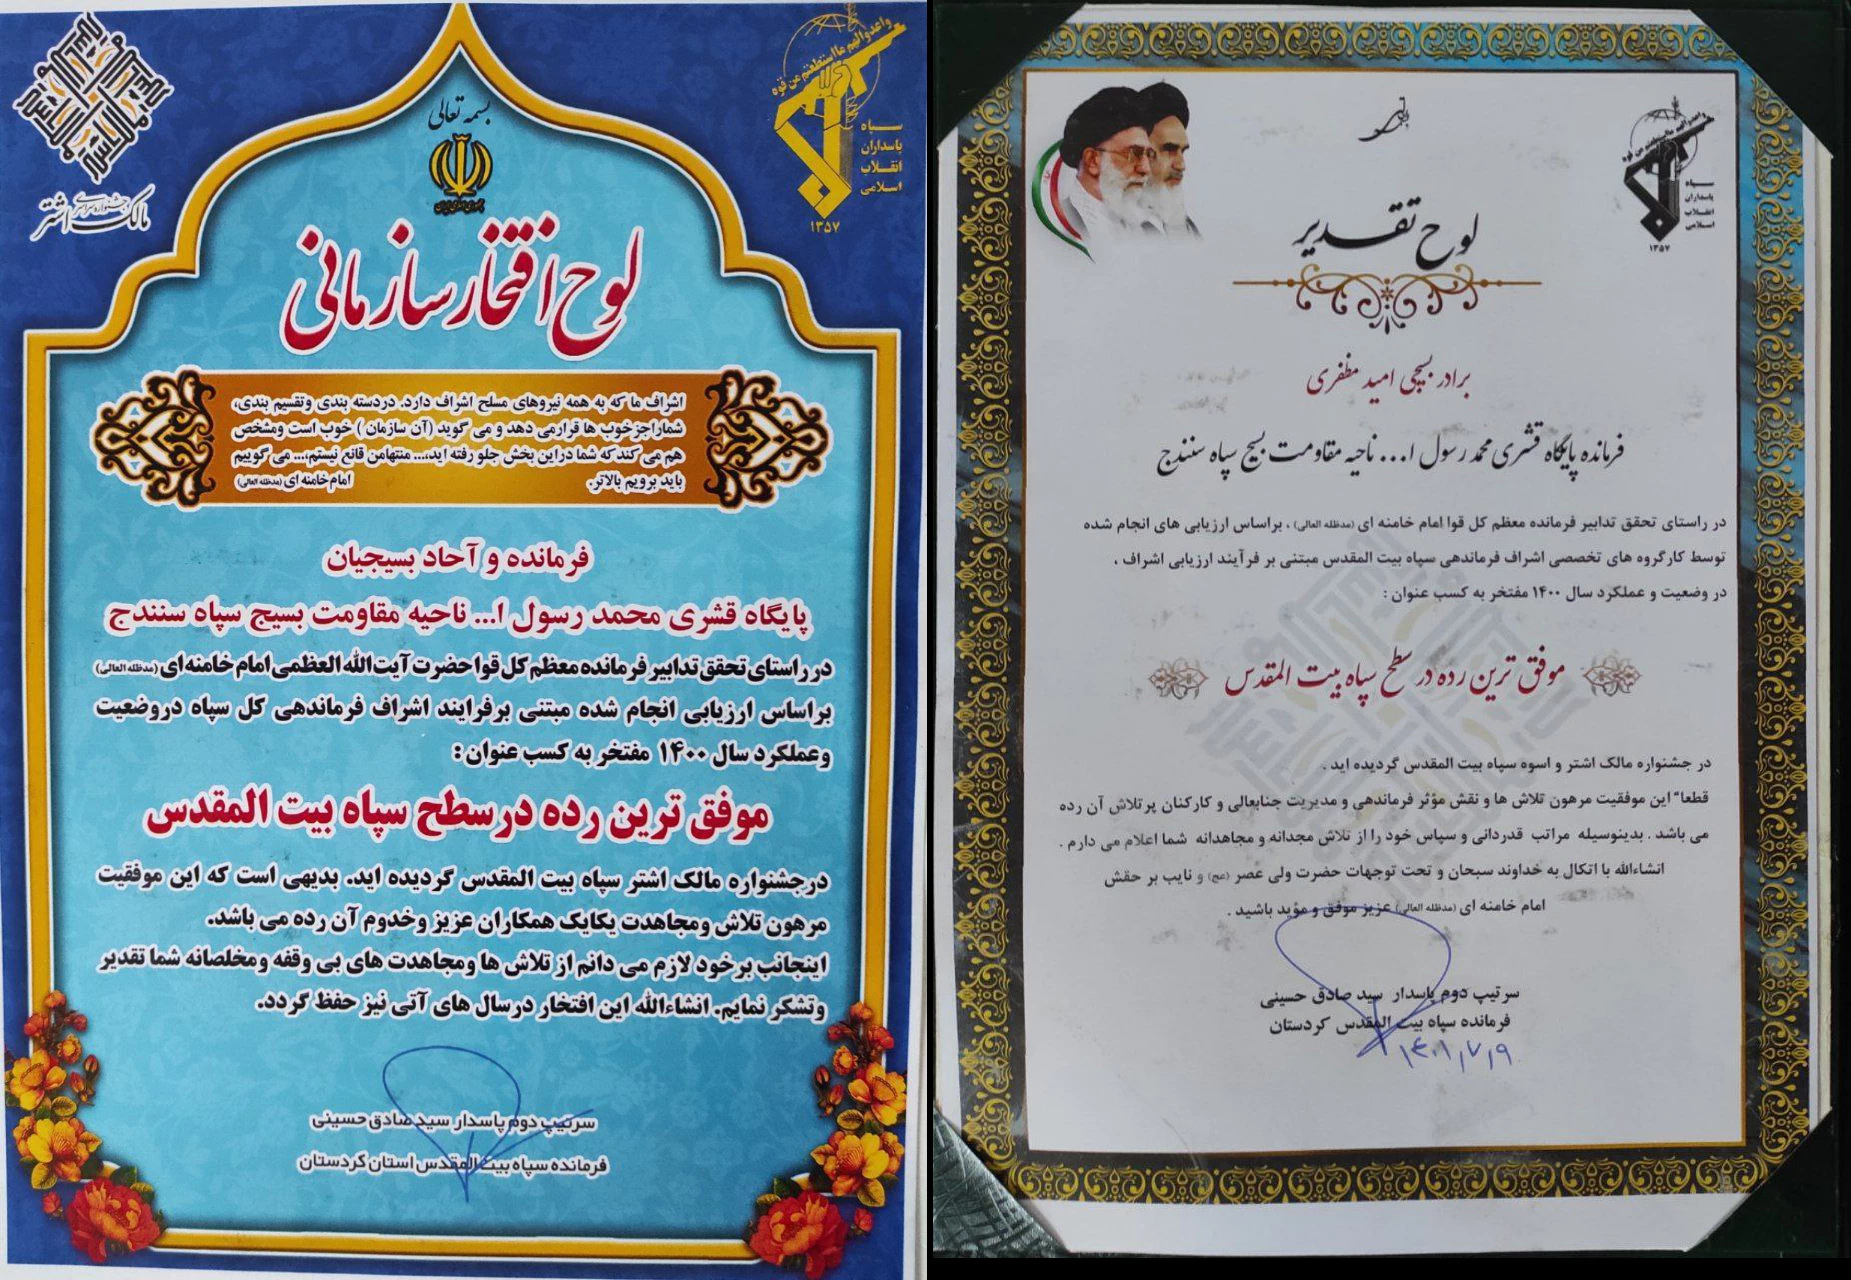 جشنواره سراسری
مالک اشتر
واعدوا لهم ما استطعتم من قوه
سپاه
پاسداران
انقلاب
اسلامی
۱۳۵۷
بسمه تعالی
جمهوری اسلامی ایران
لوح افتخار سازمانی
اشراف ما که به همه نیروهای مسلح اشراف دارد. دردسته بندی وتقسیم بندی،
شماراجزخوب ها قرارمی دهد و می گوید (آن سازمان ) خوب است ومشخص
هم می کندکه شما دراین بخش جلو رفته اید،... منتهامن قانع نیستم،... می گوییم
باید برویم بالاتر. امام خامنه ای (مدظله العالی)
فرمانده و آحاد بسیجیان
پایگاه قشری محمد رسول ا... ناحیه مقاومت بسیج سپاه سنندج
در راستای تحقق تدابیر فرمانده معظم کل قوا حضرت آیت الله العظمی امام خامنه ای (مدظله العالی)
براساس ارزیابی انجام شده مبتنی برفرایند اشراف فرماندهی کل سپاه دروضعیت
وعملکرد سال ۱۴۰۰ مفتخر به کسب عنوان :
موفق ترین رده درسطح سپاه بیت المقدس
درجشنواره مالک اشتر سپاه بیت المقدس گردیده اید. بدیهی است که این موفقیت
مرهون تلاش ومجاهدت یکایک همکاران عزیز وخدوم آن رده می باشد.
اینجانب برخود لازم می دانم از تلاش ها ومجاهدت های بی وقفه ومخلصانه شما تقدیر
وتشکر نمایم. انشاءالله این افتخار درسال های آتی نیز حفظ گردد.
سرتیپ دوم پاسدار سید صادق حسینی
فرمانده سپاه بیت المقدس استان کردستان
بسمه تعالی
واعدوا لهم ما استطعتم من قوه
سپاه
پاسداران
انقلاب
اسلامی
۱۳۵۷
لوح تقدیر
برادر بسیجی امید مظفری
فرمانده پایگاه قشری محمد رسول ا... ناحیه مقاومت بسیج سپاه سنندج
در راستای تحقق تدابیر فرمانده معظم کل قوا امام خامنه ای (مدظله العالی) ، براساس ارزیابی های انجام شده
توسط کارگروه های تخصصی اشراف فرماندهی سپاه بیت المقدس مبتنی بر فرآیند ارزیابی اشراف ،
در وضعیت و عملکرد سال ۱۴۰۰ مفتخر به کسب عنوان :
موفق ترین رده در سطح سپاه بیت المقدس
در جشنواره مالک اشتر و اسوه سپاه بیت المقدس گردیده اید .
قطعا" این موفقیت مرهون تلاش ها و نقش مؤثر فرماندهی و مدیریت جنابعالی و کارکنان پرتلاش آن رده
می باشد . بدینوسیله مراتب قدردانی و سپاس خود را از تلاش مجدانه و مجاهدانه شما اعلام می دارم .
انشاءالله با اتکال به خداوند سبحان و تحت توجهات حضرت ولی عصر (عج) و نایب بر حقش
امام خامنه ای (مدظله العالی) عزیز موفق و مؤید باشید .
سرتیپ دوم پاسدار سید صادق حسینی
فرمانده سپاه بیت المقدس کردستان
۱۴۰۱/۷/۹